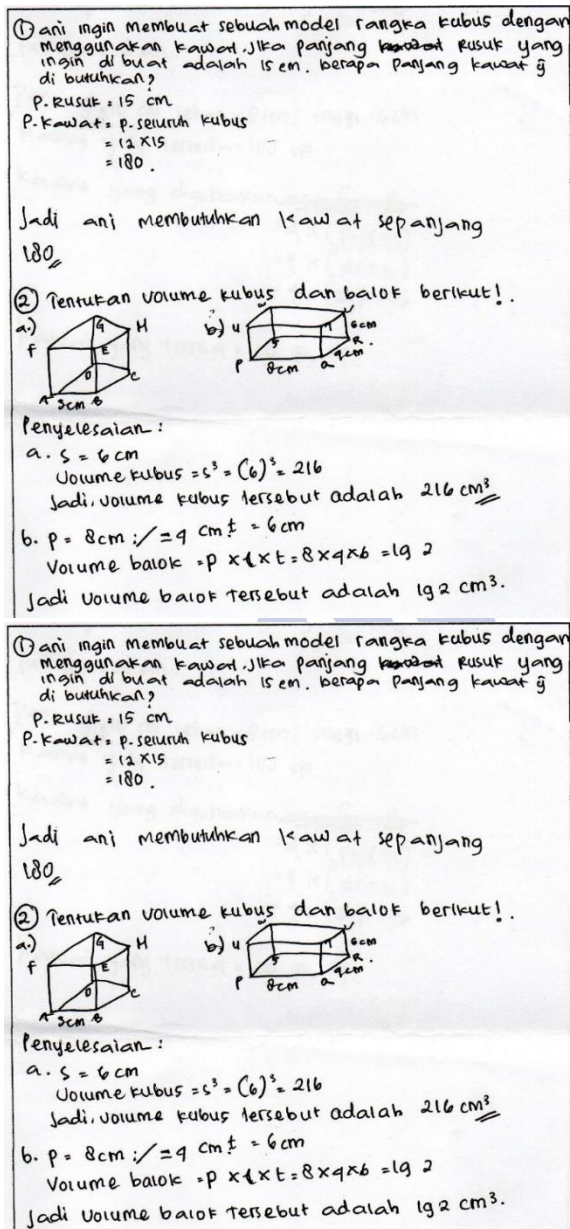 ① ani ingin membuat sebuah model rangka kubus dengan
menggunakan kawat. Jika panjang rusuk yang
ingin di buat adalah 15 cm. berapa panjang kawat yg
di butuhkan?
P. Rusuk = 15 cm
P. Kawat = P. seluruh kubus
= 12 × 15
= 180.
Jadi ani membutuhkan kawat sepanjang
180
② Tentukan volume kubus dan balok berikut!.
a.) G H b) W V
F E U T 6cm
D C S R
A 9cm B P 8cm Q 4cm
Penyelesaian :
a. s = 6 cm
Volume kubus = s³ = (6)³ = 216
Jadi, volume kubus tersebut adalah 216 cm³
b. P = 8cm ; l = 4 cm t = 6cm
Volume balok = P × l × t = 8 × 4 × 6 = 192
Jadi volume balok tersebut adalah 192 cm³.
① ani ingin membuat sebuah model rangka kubus dengan
menggunakan kawat. Jika panjang rusuk yang
ingin di buat adalah 15 cm. berapa panjang kawat yg
di butuhkan?
P. Rusuk = 15 cm
P. Kawat = P. seluruh kubus
= 12 × 15
= 180.
Jadi ani membutuhkan kawat sepanjang
180
② Tentukan volume kubus dan balok berikut!.
a.) G H b) W V
F E U T 6cm
D C S R
A 9cm B P 8cm Q 4cm
Penyelesaian :
a. s = 6 cm
Volume kubus = s³ = (6)³ = 216
Jadi, volume kubus tersebut adalah 216 cm³
b. P = 8cm ; l = 4 cm t = 6cm
Volume balok = P × l × t = 8 × 4 × 6 = 192
Jadi volume balok tersebut adalah 192 cm³.